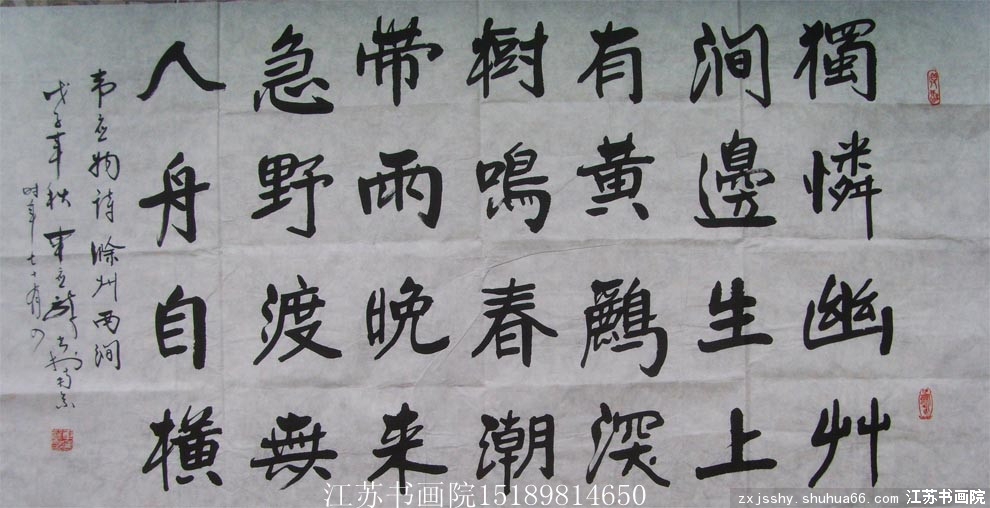 獨憐幽艸
澗邊生上
有黄鸝深
樹鳴春潮
帶雨晚来
急野渡無
人舟自橫
韦应物诗滁州西涧
戊子年秋
时年七十有四
江苏书画院15189814650
zxjsshy.shuhua66.com 江苏书画院